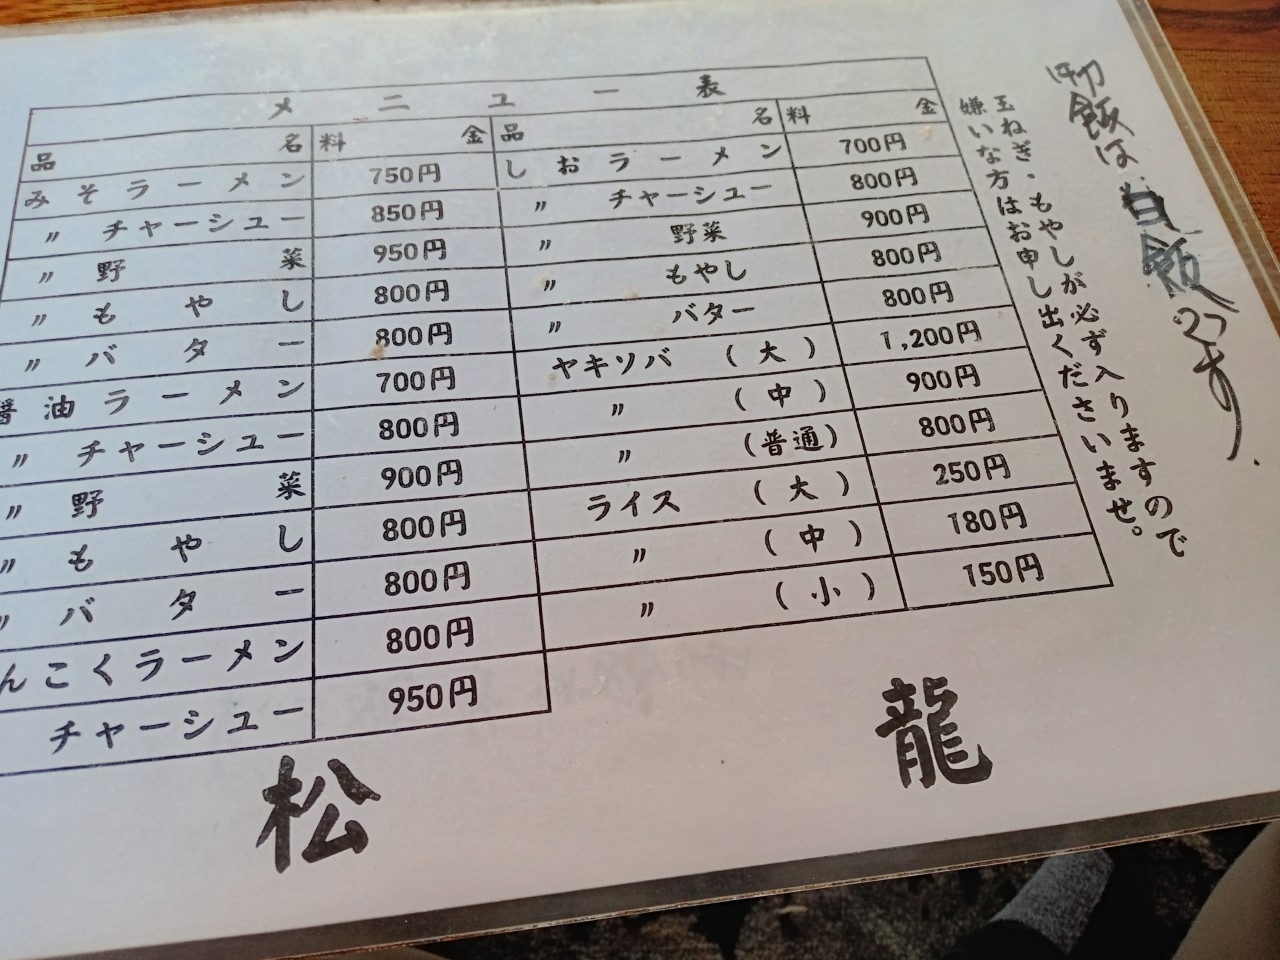 メニュー表
品名 料金 品名 料金
みそラーメン 750円 しおラーメン 700円
〃 チャーシュー 850円 〃 チャーシュー 800円
〃 野菜 950円 〃 野菜 900円
〃 もやし 800円 〃 もやし 800円
〃 バター 800円 〃 バター 800円
醤油ラーメン 700円 ヤキソバ (大) 1,200円
〃 チャーシュー 800円 〃 (中) 900円
〃 野菜 900円 〃 (普通) 800円
〃 もやし 800円 ライス (大) 250円
〃 バター 800円 〃 (中) 180円
んこくラーメン 800円 〃 (小) 150円
チャーシュー 950円
御飯は白飯です.
玉ねぎ・もやしが必ず入りますので
嫌いな方はお申し出くださいませ。
松龍